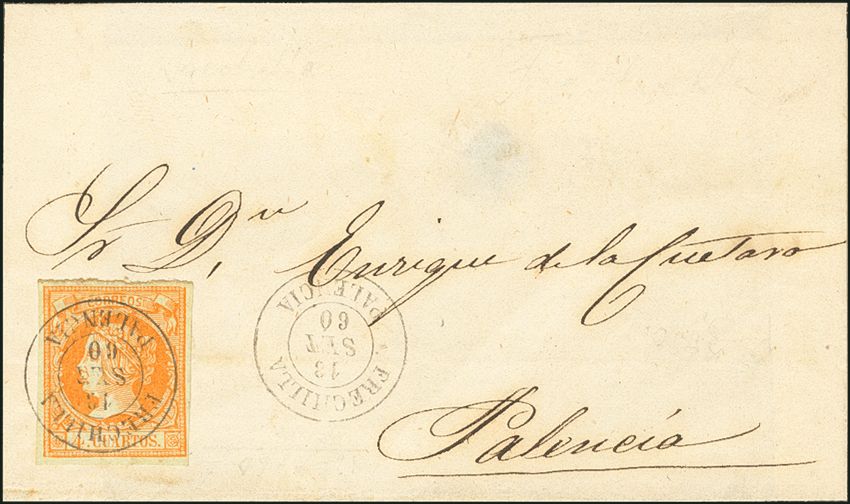 Sr D.n Enrique de la Cuetara
CORREOS
4. CUARTOS.
FRECHILLA
13
SET
60
PALENCIA
FRECHILLA
13
SET
60
PALENCIA
Palencia